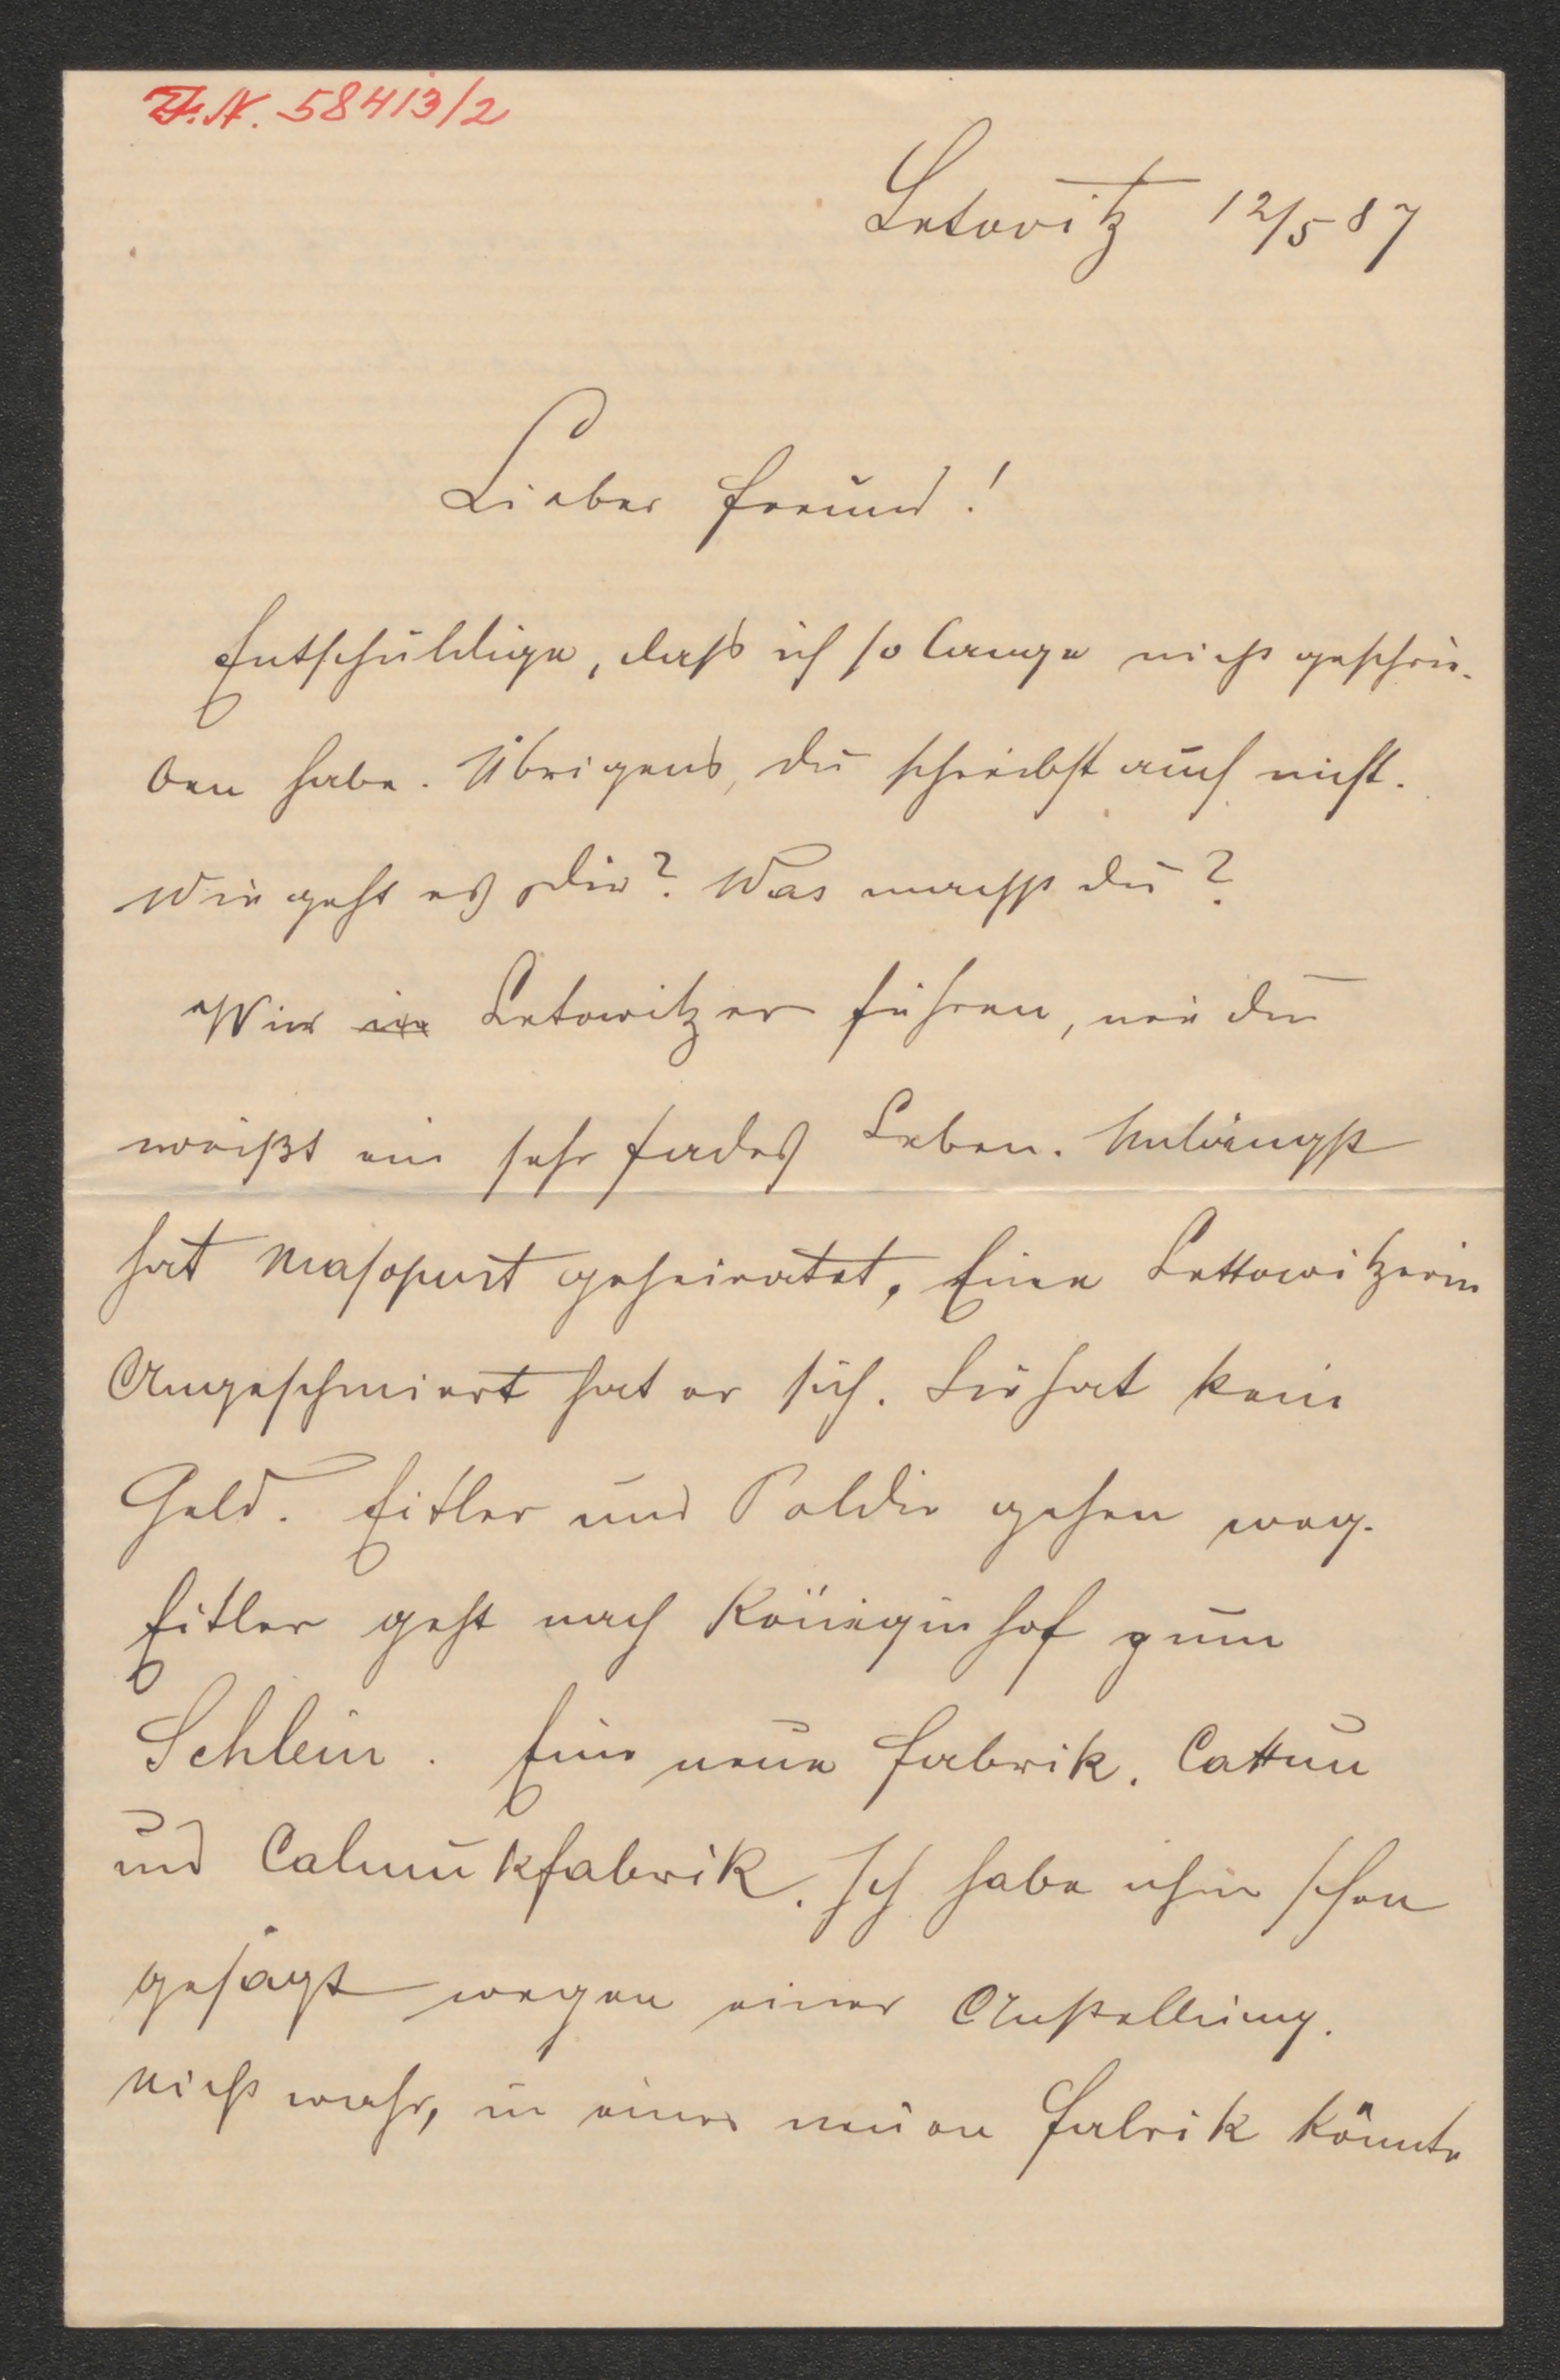 I.N. 58413/2
Letowitz 12/5 87
Lieber Freund!
Entschuldige, dass ich so lange nicht geschrie-
ben habe. Übrigens, du schreibst auch nicht.
Wie geht es Dir? Was machst du?
Wir in Letowitzer führen, wie du
weißt ein sehr fades Leben. Unlängst
hat Masopust geheiratet, Eine Lettowitzerin
Angeschmiert hat er sich. Sie hat kein
Geld. Eitler und Poldie gehen weg.
Eitler geht nach Königinhof zum
Schlein. Eine neue Fabrik. Cattun
und Calmukfabrik. Ich habe ihm schon
gesagt wegen einer Anstellung.
Nicht wahr, in einer neuen Fabrik könnte